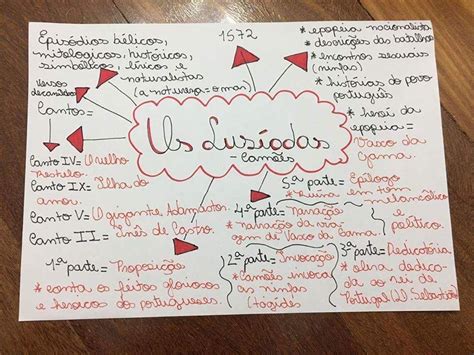 Episódios bélicos,
mitologicos, históricos,
simbólicos, líricos e
naturalistas
(a natureza = o mar)
1572
* epopeia - nacionalista
* descrições das batalhas
* encontros sexuais
(ninfas)
* histórias do povo
português
* herói da
epopeia =
Vasco da
Gama.
versos
decassílabos
Cantos =
Os Lusíadas
- Camões
Canto IV = O velho
Restelo.
Canto IX = Ilha do
amor.
Canto V = O gigante Adamastor
Canto III = Inês de Castro.
1ª parte = Proposição
* conta os feitos gloriosos
e heroicos dos portugueses.
2ª parte = Invocação
* Camões invoca
as ninfas
(tágides
3ª parte = Dedicatória
* obra dedica-
da ao rei de
Portugal (D. Sebastião)
4ª parte = Narração
* narração da via-
gem de Vasco da Gama.
5ª parte = Epílogo
em tom
melancólico
e
político.